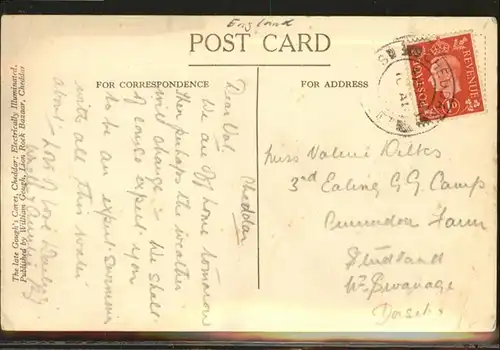 England
POST CARD
FOR CORRESPONDENCE
FOR ADDRESS
Cheddar
Dear Val,
We are off home tomorrow
then perhaps the weather
will change - We shall
of course expect you
to be an expert swimmer
with all this water
about - Lots of love
Miss Valerie Dilkes
3rd Ealing G.G. Camp
Farm
Studland
Nr. Swanage
Dorset
POSTAGE
REVENUE
1D
The late Gough's Caves, Cheddar; Electrically Illuminated.
Published by William Gough, Lion Rock Bazaar, Cheddar